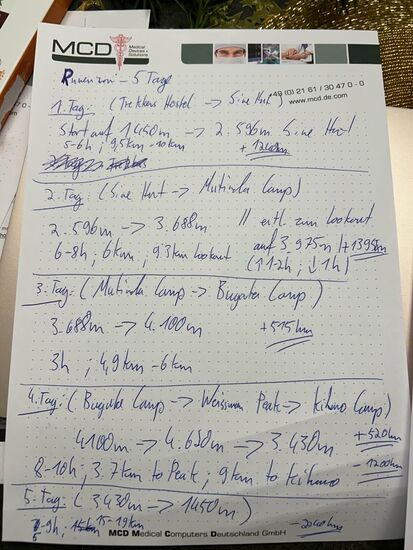 MCD Medical Devices + Solutions
Ruwenzori - 5 Tage
+49 (0) 21 61 / 30 47 0 - 0
www.mcd.de.com
1. Tag: (Trekkers Hostel -> Sine Hut)
Start auf 1450m -> 2.596m Sine Hut
5-6h; 9,5km - 10km + 1200hm
2. Tag: (Sine Hut -> Mutinda Camp)
2.596m -> 3.688m // evtl. zum Lookout
6-8h; 6km; 9,3km lookout auf 3.975m/+1395hm
(↑1-2h; ↓1h)
3. Tag: (Mutinda Camp -> Bugata Camp)
3.688m -> 4.100m +515hm
3h ; 4,9km - 6km
4. Tag: ( Bugata Camp -> Weissman Peak -> Kiharo Camp)
4100m -> 4.620m -> 3.430m +520hm
8-10h; 3.7km to Peak; 9km to Kiharo -1200hm
5. Tag: ( 3.430m -> 1450m)
-9h; 15-19km -2040hm
MCD Medical Computers Deutschland GmbH